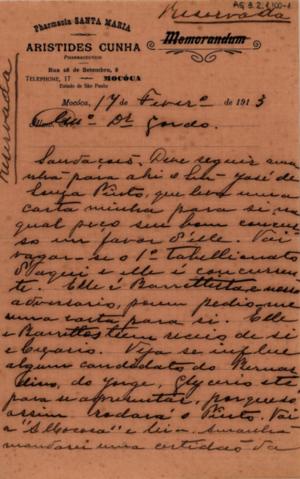 Reservada
AG 3.2.100-1
Pharmacia SANTA MARIA
ARISTIDES CUNHA
PHARMACEUTICO
Rua 16 de Setembro, 8
TELEPHONE, 17
MOCÓCA
Estado de São Paulo
Memorandum
Reservada
Mocóca, 17 de Fever.º de 1913
Exmo. Dr. Gordo.
Saudações. Deve seguir ama
nhã para ahi o Snr. José de
Souza Pinto, que leva uma
carta minha para si, na
qual peço seu bom concur
so em favor d'elle. Vai
vagar-se o 1º Tabellionato
d'aqui e elle é concurren
te. Elle é Barrettista e nosso
adversario, porem pedio-me
uma carta para si. Elle
e Barrettos têm receio de si
e Cezario. Veja se influe
algum candidato do Bernar
dino, do Jorge, Glycerio etc
para se apresentar, porque só
assim rodará o Pinto. Vai
a "Mococa" e leia. Amanhã
mandarei uma certidão da